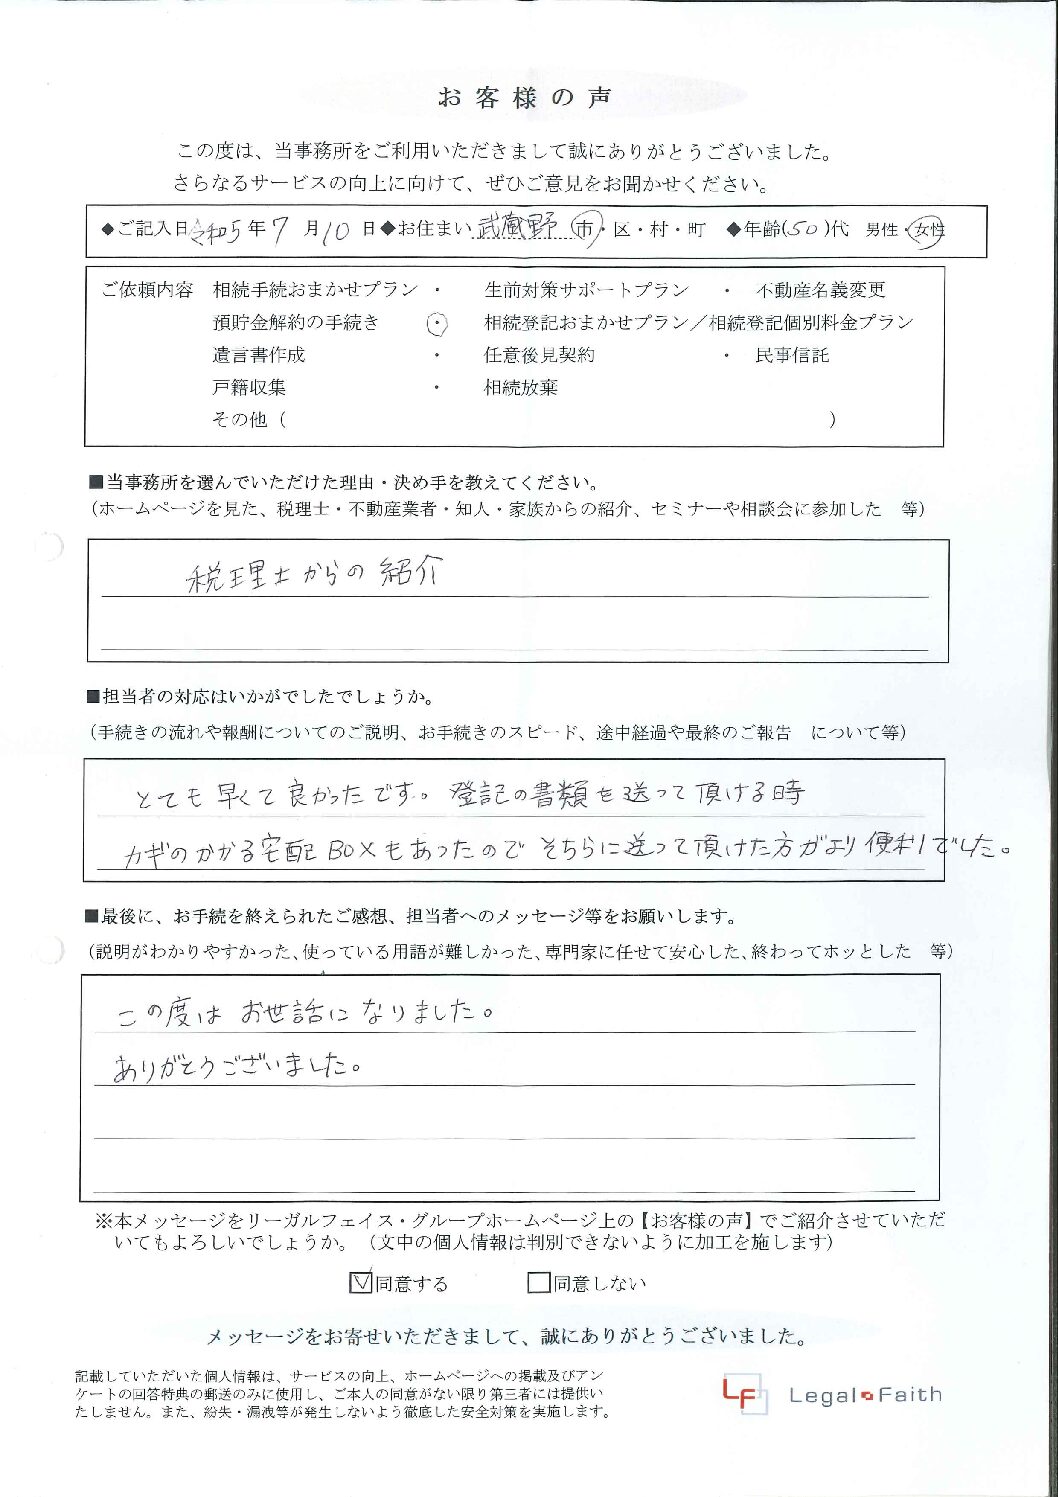 お客様の声
この度は、当事務所をご利用いただきまして誠にありがとうございました。
さらなるサービスの向上に向けて、ぜひご意見をお聞かせください。
◆ご記入日 令和5年 7月10日 ◆お住まい 武蔵野 市・区・村・町 ◆年齢(50)代 男性・女性
ご依頼内容 相続手続おまかせプラン ・ 生前対策サポートプラン ・ 不動産名義変更
預貯金解約の手続き ・ 相続登記おまかせプラン／相続登記個別料金プラン
遺言書作成 ・ 任意後見契約 ・ 民事信託
戸籍収集 ・ 相続放棄
その他（ ）
■当事務所を選んでいただけた理由・決め手を教えてください。
（ホームページを見た、税理士・不動産業者・知人・家族からの紹介、セミナーや相談会に参加した 等）
税理士からの紹介
■担当者の対応はいかがでしたでしょうか。
（手続きの流れや報酬についてのご説明、お手続きのスピード、途中経過や最終のご報告 について等）
とても早くて良かったです。登記の書類を送って頂ける時
カギのかかる宅配BOXもあったのでそちらに送って頂けた方がより便利でした。
■最後に、お手続を終えられたご感想、担当者へのメッセージ等をお願いします。
（説明がわかりやすかった、使っている用語が難しかった、専門家に任せて安心した、終わってホッとした 等）
この度はお世話になりました。
ありがとうございました。
※本メッセージをリーガルフェイス・グループホームページ上の【お客様の声】でご紹介させていただ
いてもよろしいでしょうか。（文中の個人情報は判別できないように加工を施します）
☑同意する □同意しない
メッセージをお寄せいただきまして、誠にありがとうございました。
記載していただいた個人情報は、サービスの向上、ホームページへの掲載及びアン
ケートの回答特典の郵送のみに使用し、ご本人の同意がない限り第三者には提供い
たしません。また、紛失・漏洩等が発生しないよう徹底した安全対策を実施します。
LF Legal Faith